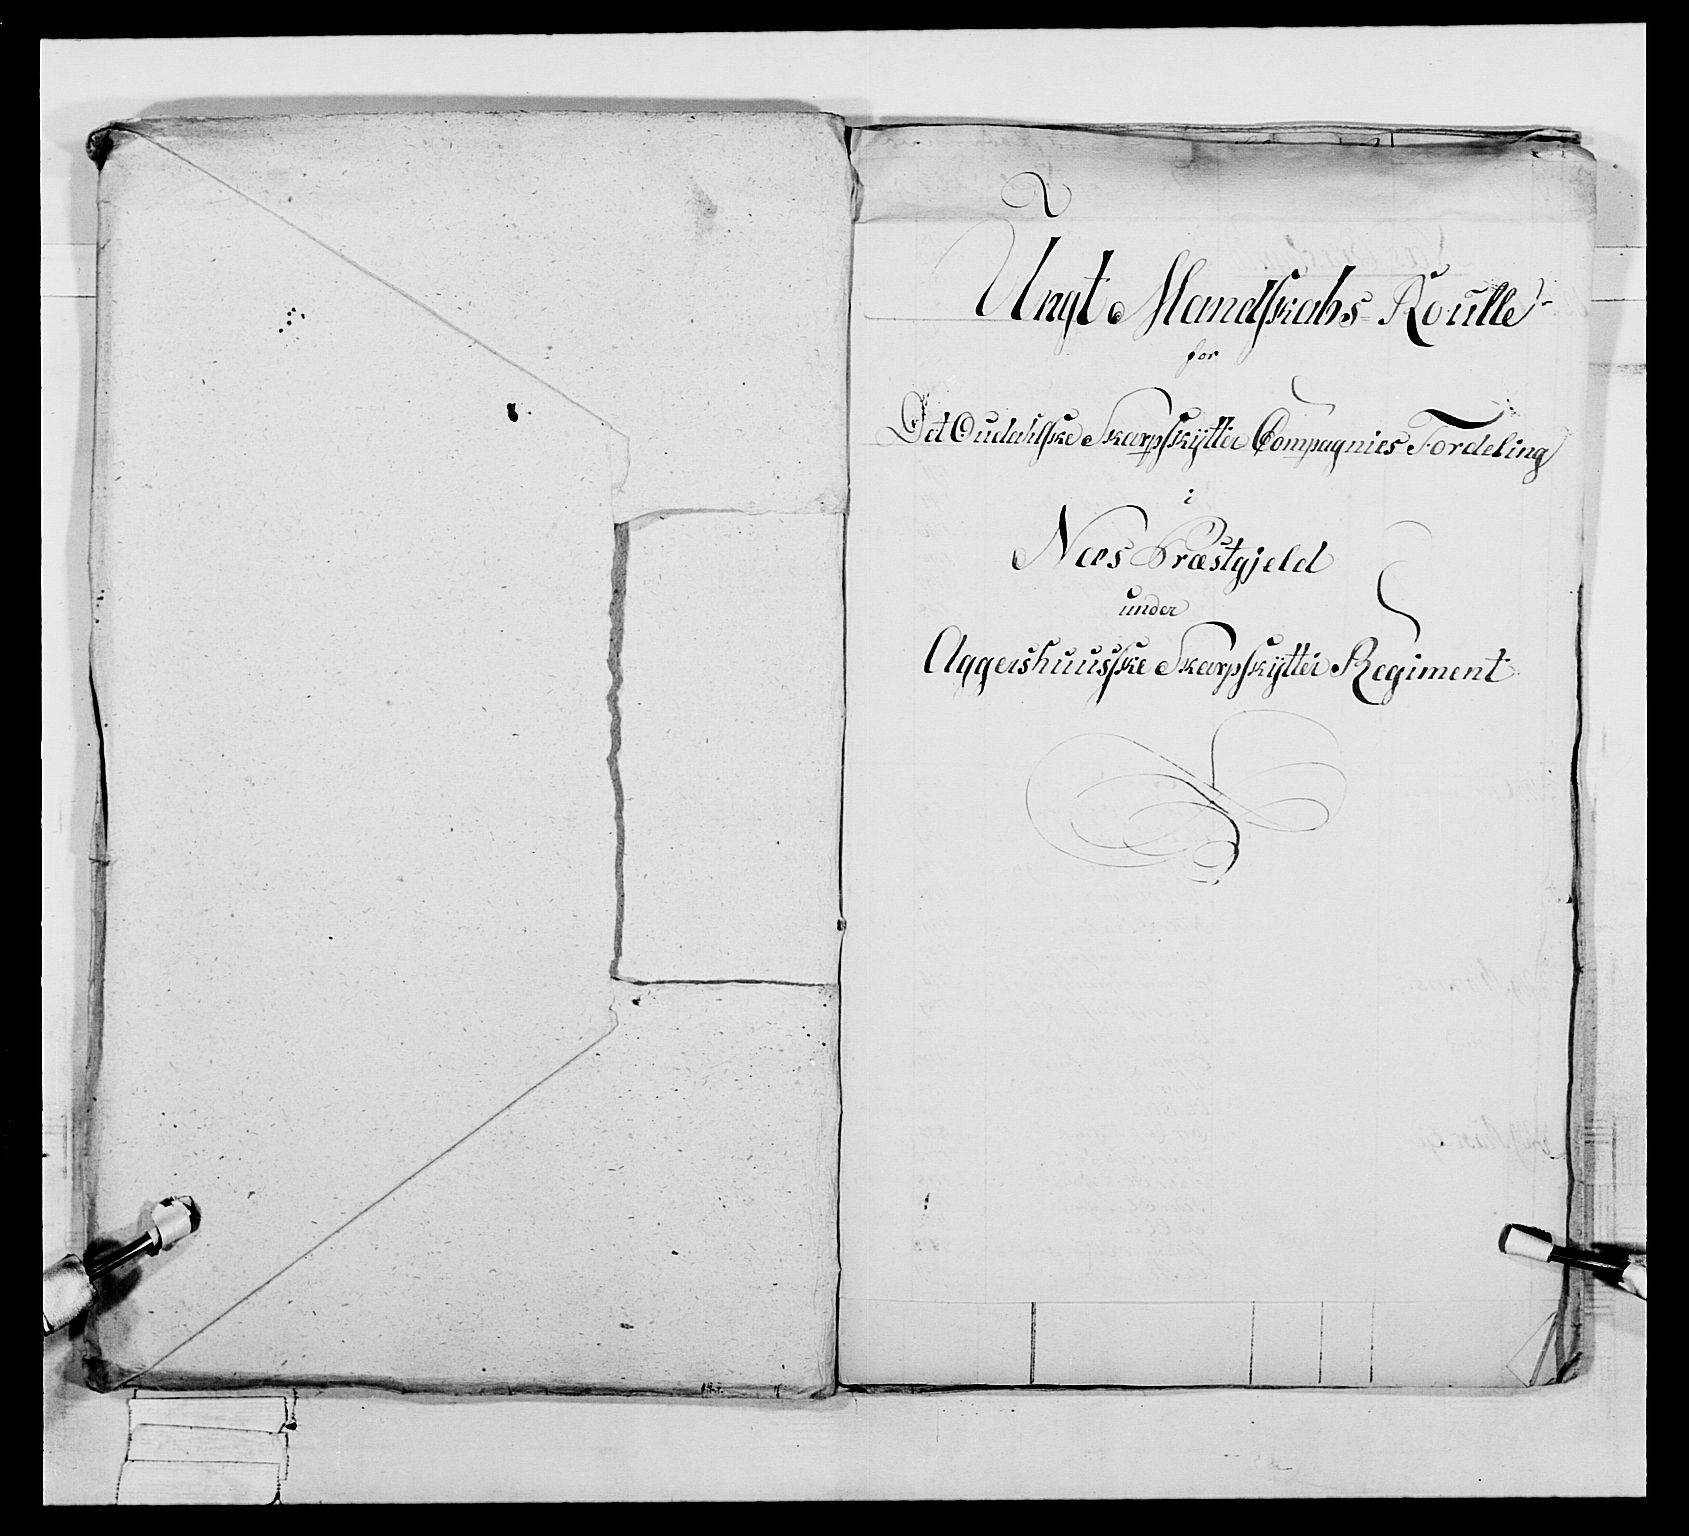 Ungt Mandskabs Roulle
for
Det Oudalske Skarpskytter Compagnies Fordeling
i
Næs Præstgjeld
under
Aggershuusske Skarpskytter Regiment